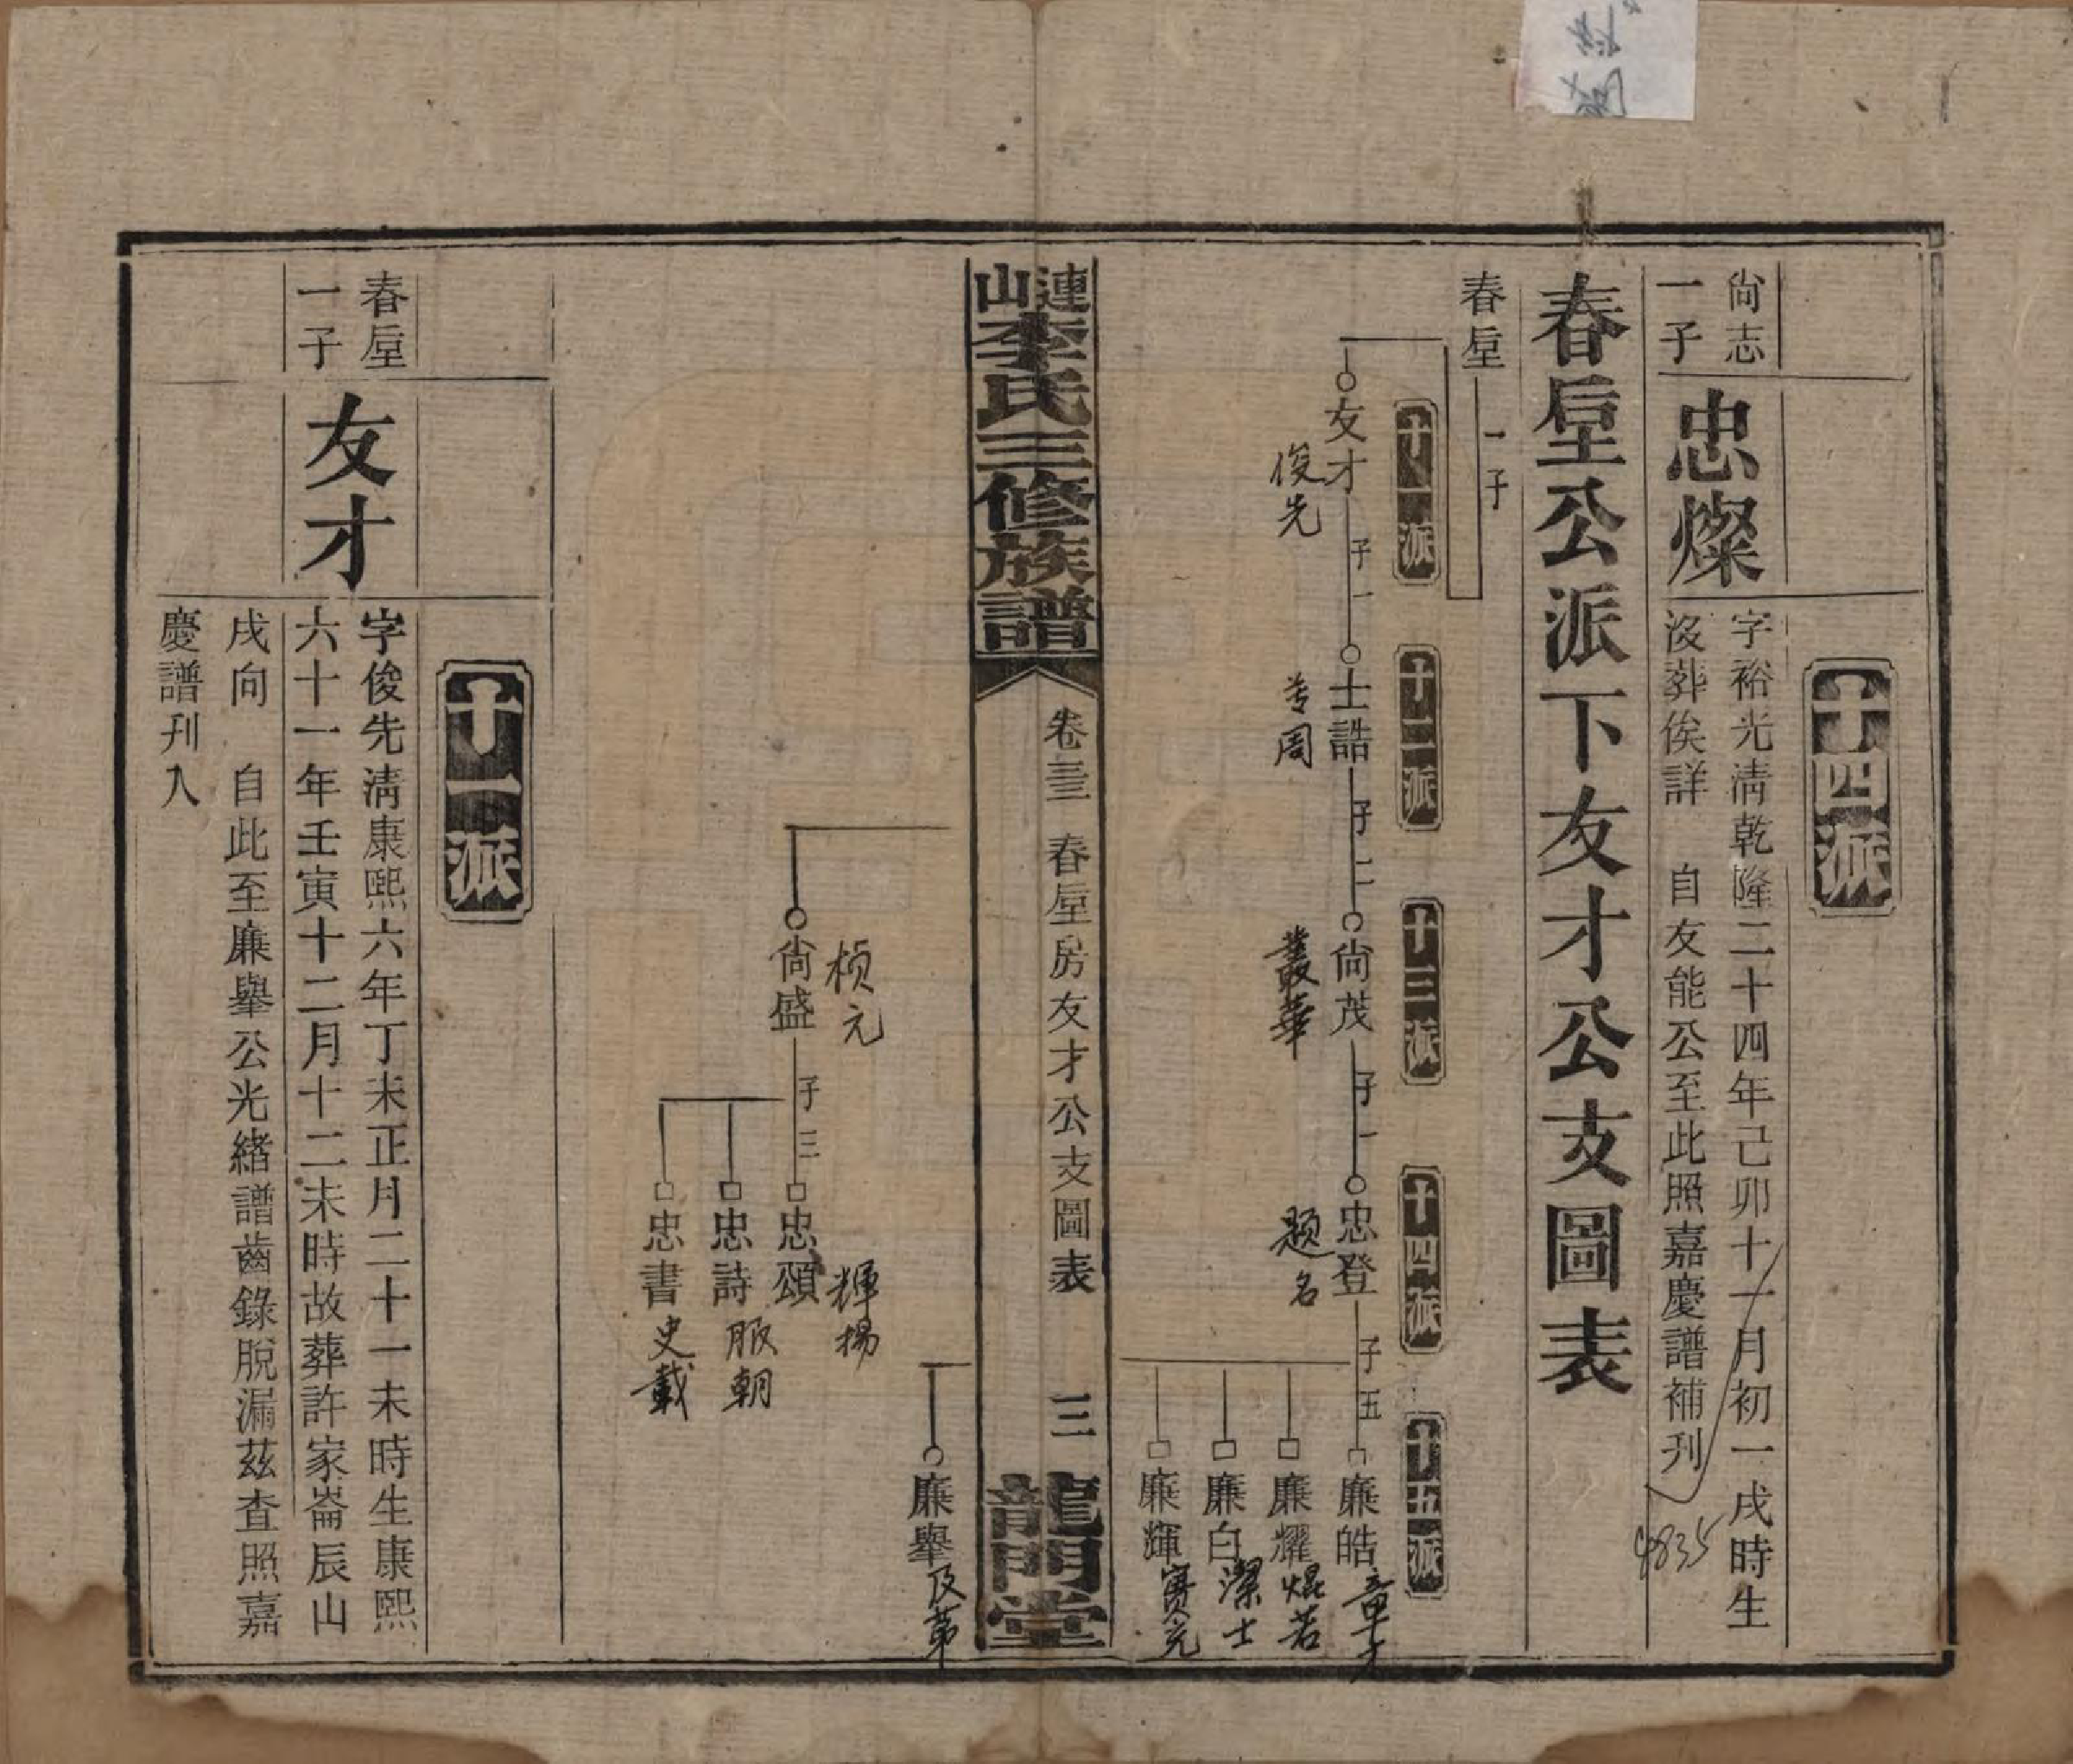 十四派
尙志
一子
忠燦
字裕光淸乾隆二十四年己卯十一月初一戌時生
沒葬俟詳 自友能公至此照嘉慶譜補刊
4835
春垕公派下友才公支圖表
春垕 一子
十一派
十二派
十三派
十四派
十五派
友才 子一 士誥 子二 尙茂 子一 忠登 子五 廉皓
俊先
叢華
题名
章才
廉耀 焜若
廉白 潔士
廉輝 賓元
漣山李氏三修族譜
卷三三 春垕房友才公支圖表 三
龍門堂
廉舉 及第
尙盛 子三 忠頌
桢元
輝揚
忠詩 服朝
忠書 史載
十一派
春垕
一子
友才
字俊先淸康熙六年丁未正月二十一未時生康熙
六十一年壬寅十二月十二未時故葬許家崙辰山
戌向 自此至廉舉公光緖譜齒錄脫漏茲查照嘉
慶譜刊入